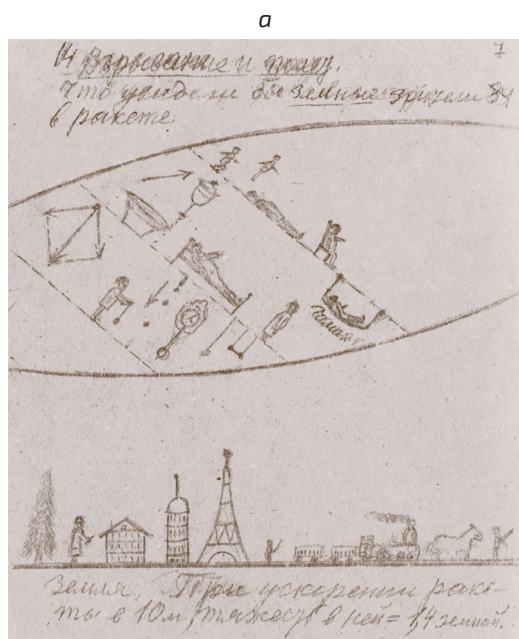 а
7
Взрывание и полет.
Что увидели бы земные зрители
в ракете
Гамак
Земля. При ускорении раке-
ты в 10 м, тяжесть в ней = 1,4 земной.